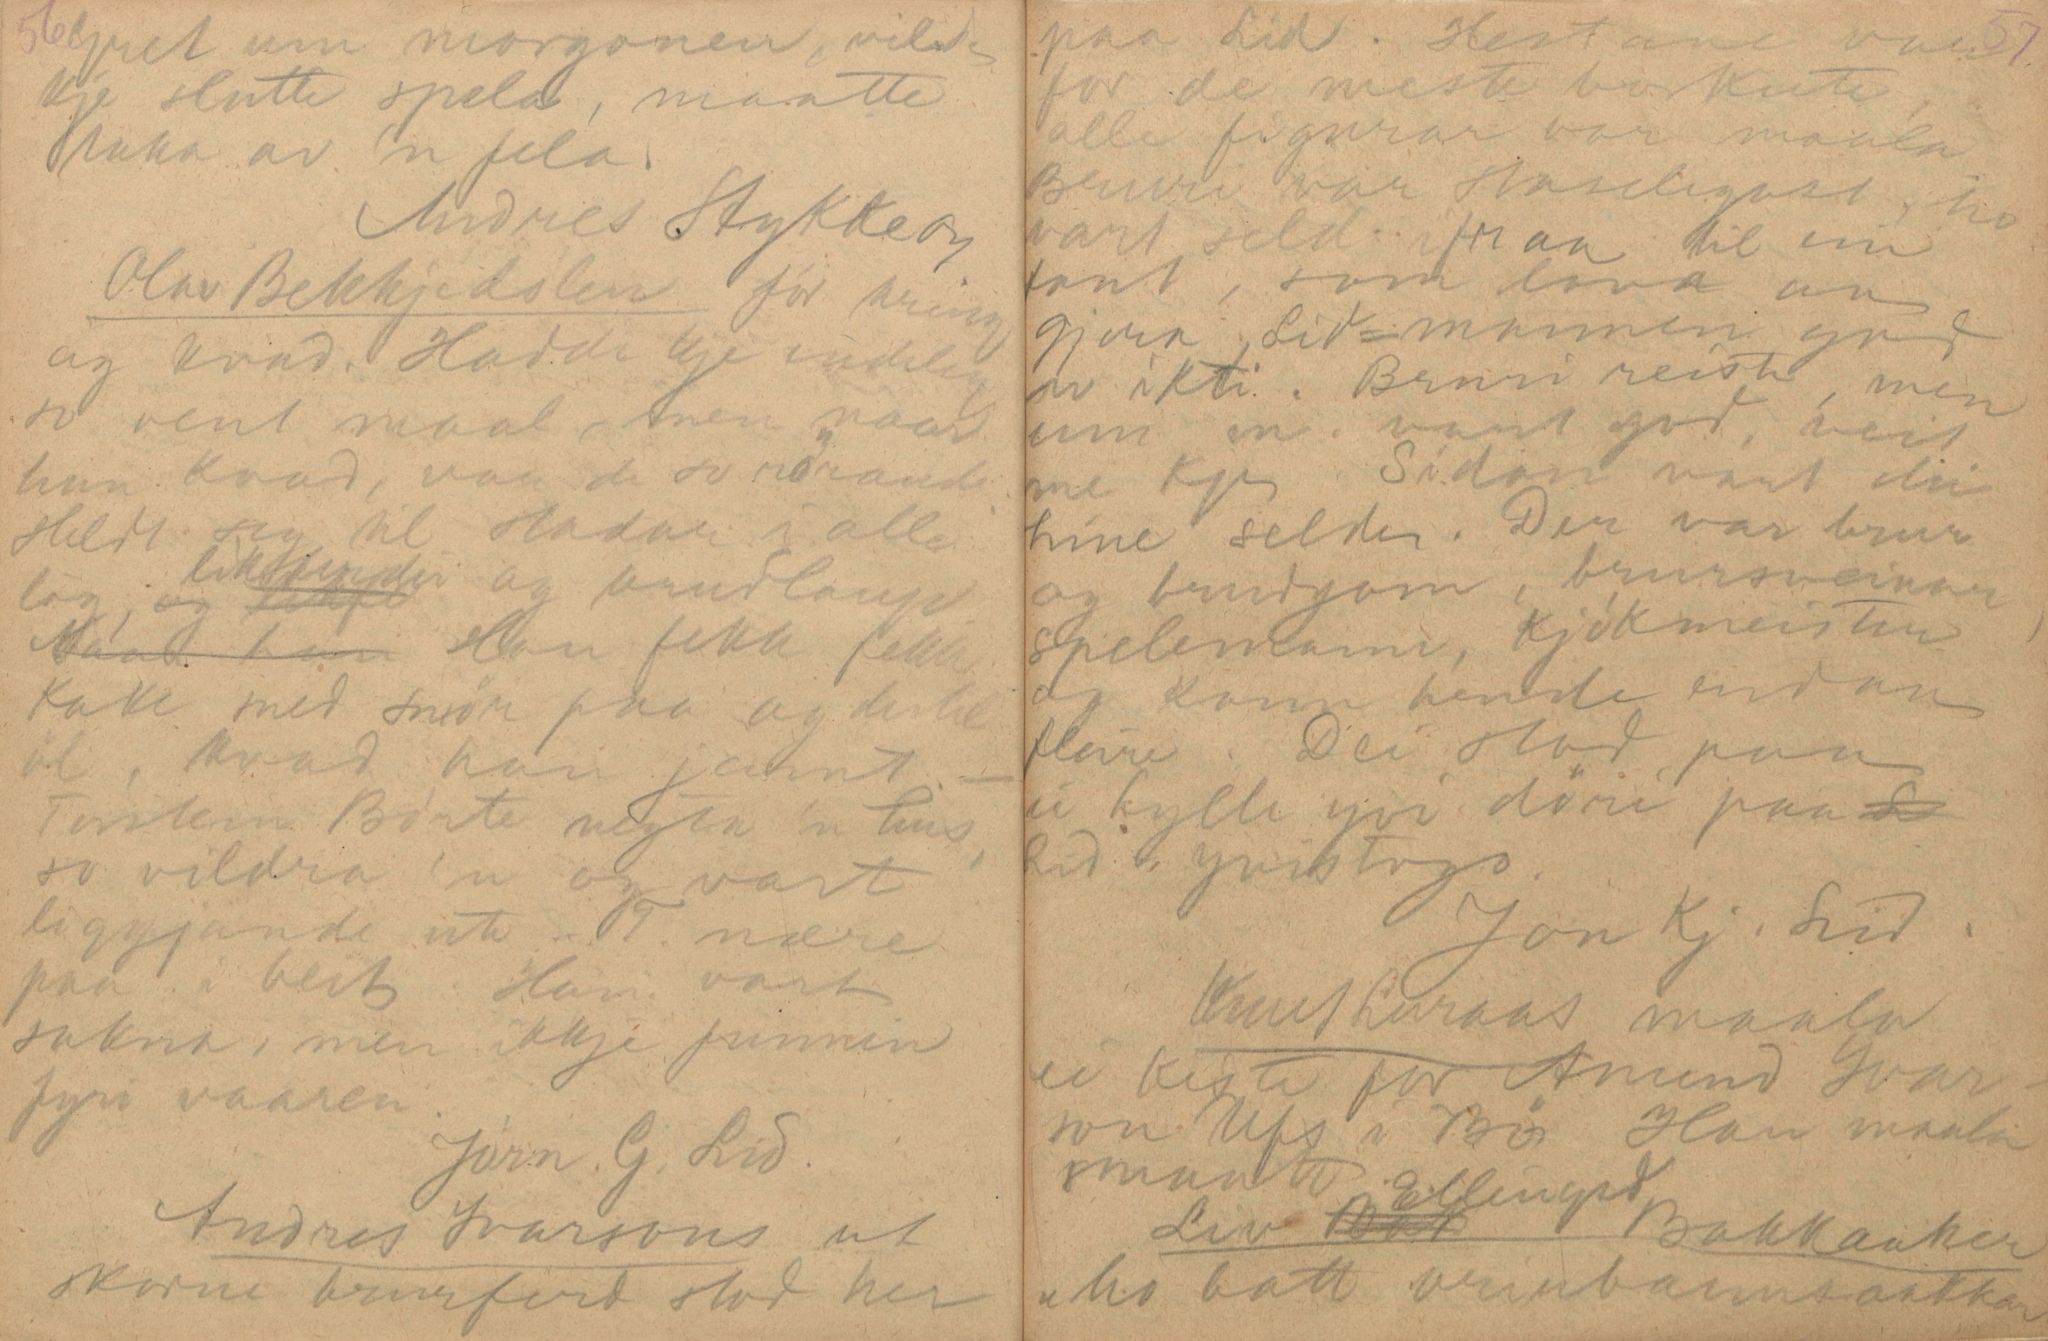 56
um morgonen, vild-
kje slutte spela, maatte
taka av 'n fela.
Andres Stykkeøy
Olav Bekkhjidalen för kring
og kvad. Hadde kje endeleg
so vent maal, men naar
han kvad, var de so rörande
Heldt seg til stadar i alle
lag, og likferder og brudlaup
Naar han Han fekk fekk
Kake med smör paa og dertil
öl, kvad han jamt. —
Torstein Börte negta 'n hus,
so vildra 'n og vart
liggjande ute. T. nære
paa i beit. Han vart
sakna, men ikkje funnin
fyri vaaren.
Jörn. G. Lid.
Andres Ivarsons ut
skorne brurferd stod her
57
paa Lid. Hestane var
for de meste borkute,
alle figurar var maala
Bruri var staselegast, ho
vart seld ifraa til ein
fant, som lova aa
gjera Lid-mannen god
av ikti. Bruri reiste, men
um 'n vart god, veit
me kje. Sidan vart dei
hine selde. Der var brur
og brudgom, brursveinar
spelemann, kjökmeister
og kann hende endaa
fleire. Dei stod paa
ei hylle yvi döri paa L
Lid i yvistogo.
Jon Kj. Lid.
Knut Luraas maala
ei kiste for Amund Ivar-
son Ufs i Bö Han maala
smaatt
Liv Ellingsd Bakkaaker
ho batt